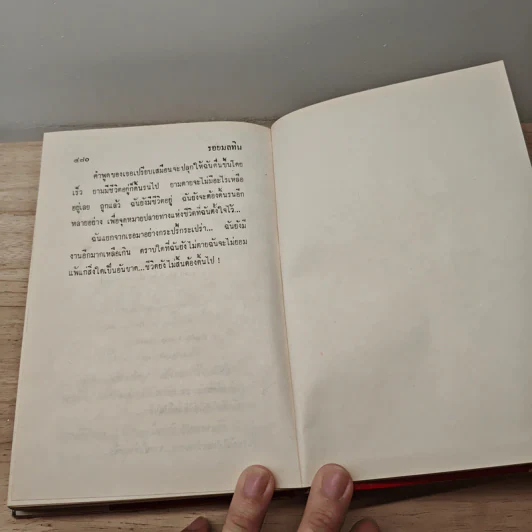 ๘๘๖ รอยมลทิน
คำพูดของเธอเปรียบเสมือนจะปลุกให้ฉันตื่นขึ้นโดย
เร็ว ยามมีชีวิตอยู่ก็ดิ้นรนไป ยามตายจะไม่มีอะไรเหลือ
อยู่เลย ถูกแล้ว ฉันยังมีชีวิตอยู่ ฉันยังจะต้องดิ้นรนอีก
หลายอย่าง เพื่อจุดหมายปลายทางแห่งชีวิตที่ฉันตั้งใจไว้...
ฉันแยกจากเธอมาอย่างกระปรี้กระเปร่า... ฉันยังมี
งานอีกมากเหลือเกิน ตราบใดที่ฉันยังไม่ตายฉันจะไม่ยอม
แพ้แก่สิ่งใดเป็นอันขาด...ชีวิตยังไม่สิ้นต้องดิ้นไป !